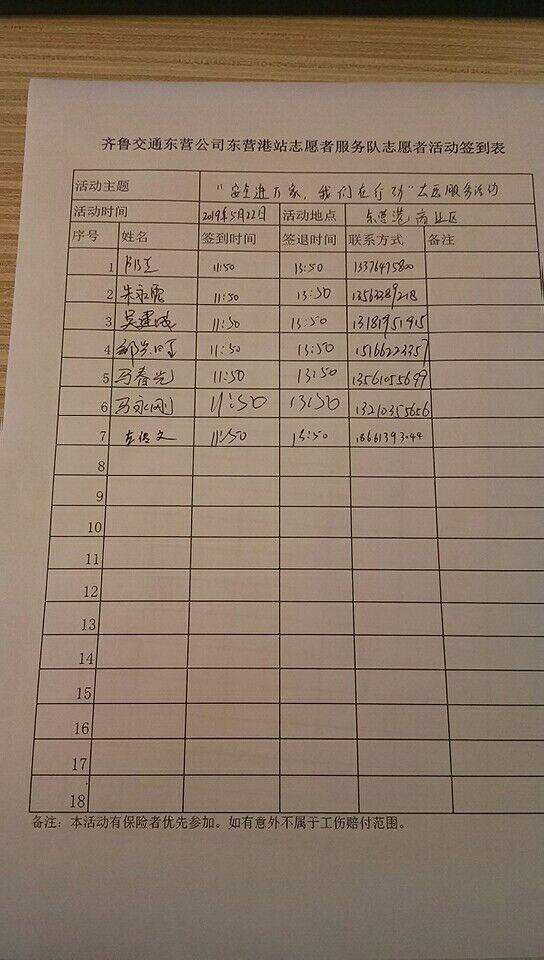 齐鲁交通东营公司东营港站志愿者服务队志愿者活动签到表
活动主题 "安全进万家，我们在行动"志愿服务活动
活动时间 2019年5月22日 活动地点 东营港商业区
序号 姓名 签到时间 签退时间 联系方式 备注
1 11:50 13:50 13376475800
2 朱永 11:50 13:50 13563389218
3 吴建 11:50 13:50 13181951915
4 11:50 13:50 15166223357
5 马春光 11:50 13:50 13561055699
6 马永刚 11:50 13:50 13210355656
7 左传文 11:50 13:50 18661393044
8
9
10
11
12
13
14
15
16
17
18
备注：本活动有保险者优先参加。如有意外不属于工伤赔付范围。